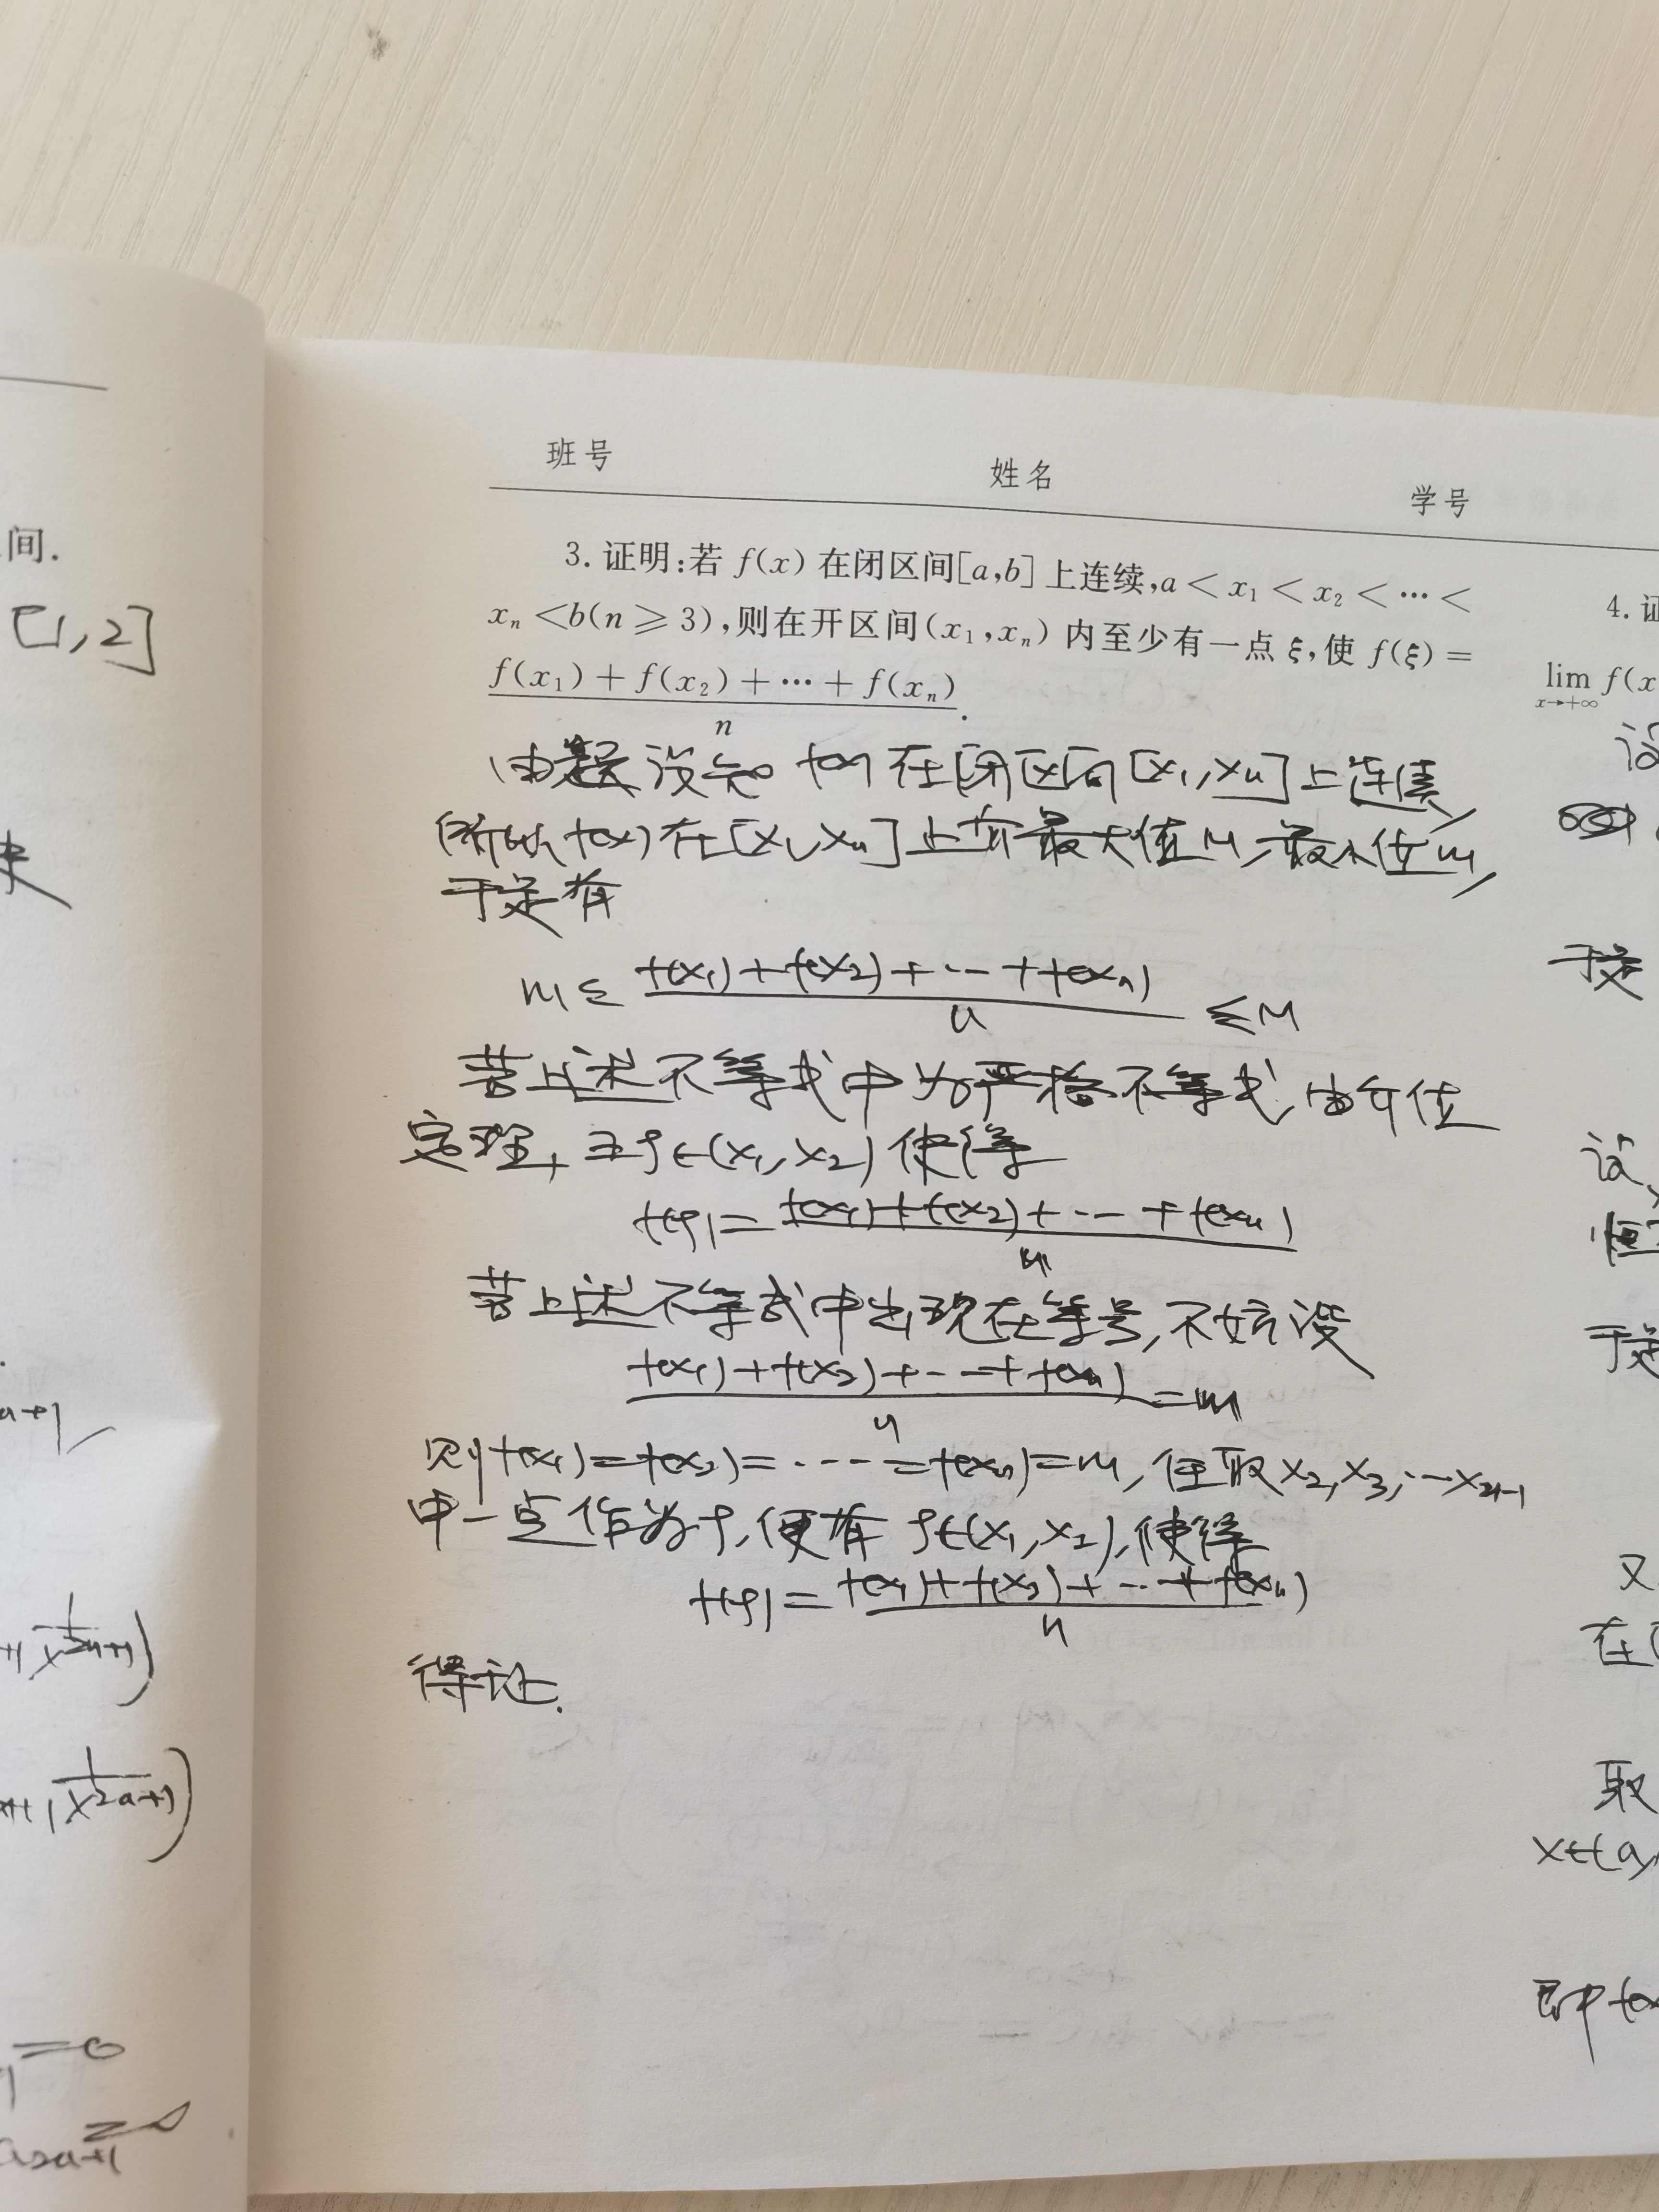 间.
[1,2]
班号 姓名 学号
3. 证明:若 f(x) 在闭区间[a,b] 上连续,a < x₁ < x₂ < ⋯ <
xₙ < b(n ⩾ 3),则在开区间(x₁,xₙ) 内至少有一点 ξ,使 f(ξ) =
f(x₁) + f(x₂) + ⋯ + f(xₙ)
n .
由题设知 f(x) 在闭区间[x₁,xₙ]上连续,
所以 f(x) 在[x₁,xₙ]上有最大值M,最小值m,
于是有
m ≤ f(x₁)+f(x₂)+⋯+f(xₙ)
n ≤ M
若上述不等式中为严格不等式,由介值
定理,∃ξ∈(x₁,x₂)使得
f(ξ)=f(x₁)+f(x₂)+⋯+f(xₙ)
n
若上述不等式中出现在等号,不妨设
f(x₁)+f(x₂)+⋯+f(xₙ)
n =m
则f(x₁)=f(x₂)=⋯=f(xₙ)=m,任取x₂,x₃,⋯xₙ₋₁
中一点作为ξ,便有 ξ∈(x₁,x₂),使得
f(ξ)=f(x₁)+f(x₂)+⋯+f(xₙ)
n
得证.
4. 证
lim f(x
x→+∞
设
于是
设
恒
于是
又
在
取
x∈(a,
即f(x